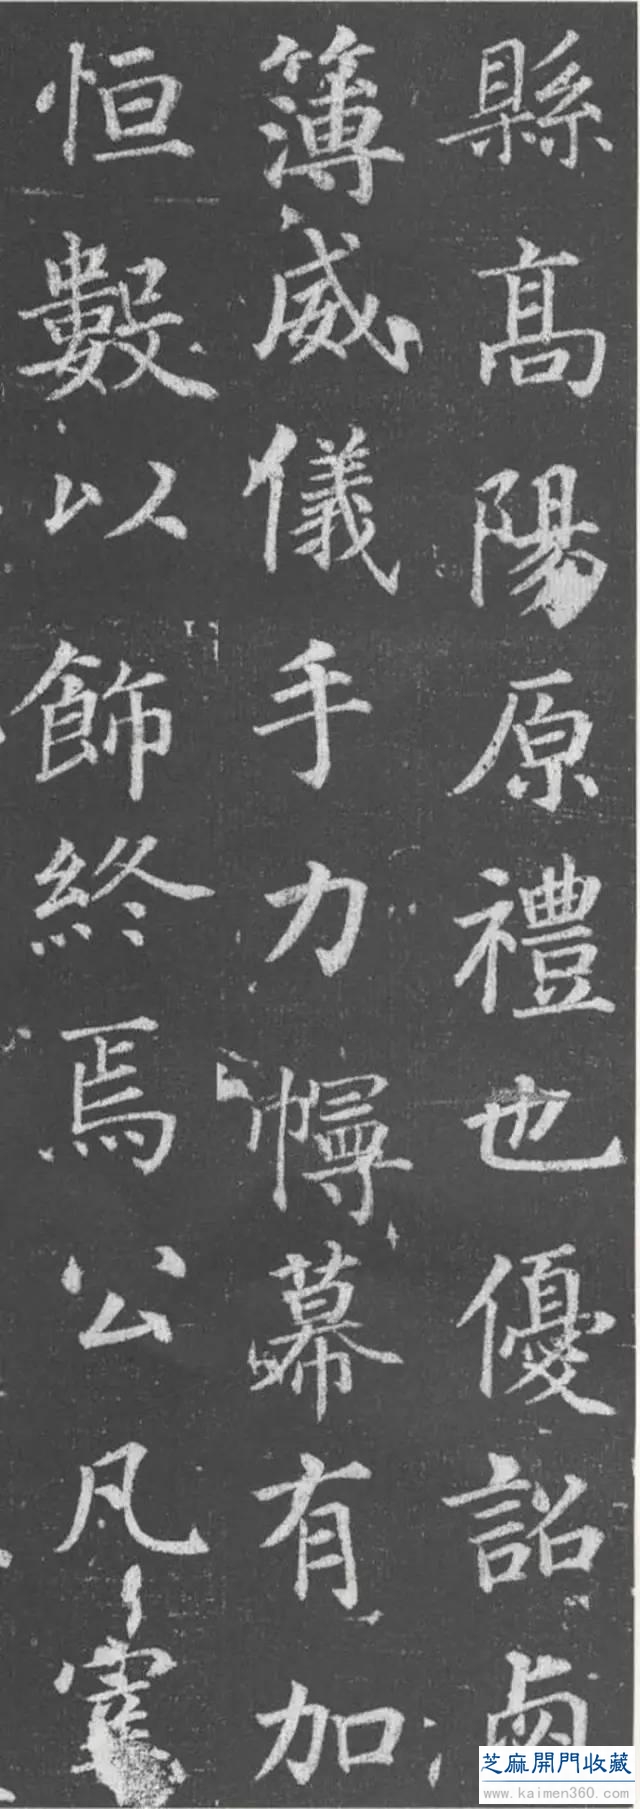 縣高陽原禮也優詔鹵
簿威儀手力幰幕有加
恒數以飾終焉公凡
芝麻開門收藏
www.kaimen360.com